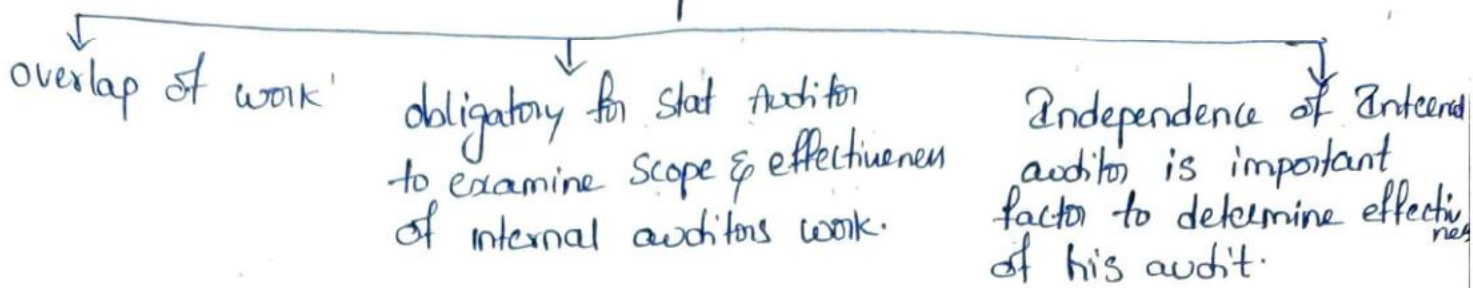 overlap of work
obligatory for Stat Auditor
to examine scope & effectiveness
of internal auditors work.
Independence of Internal
auditor is important
factor to determine effectivenes
of his audit.